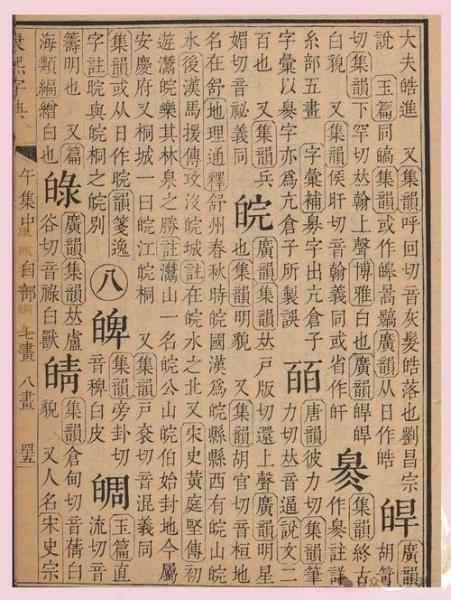 大夫皓進 又集韻呼回切音灰髮皓落也劉昌宗 皔 廣韻
說 玉篇同皜集韻或作暠廣韻从日作晧 胡笴
切集韻下罕切𠀤翰上聲博雅白也廣韻皔皔 集韻終古
白貌 又集韻侯旰切音翰義同或省作皯 作註詳
糸部五畫 字彙補字出亢倉子 皕 唐韻彼力切集韻筆
字彙以字亦爲亢倉子所製誤 力切𠀤音逼說文二
百也 又集韻兵 皖 廣韻集韻𠀤戸版切還上聲廣韻明星
媚切音祕義同 也集韻明貌 又集韻胡官切音桓地
名在舒地理通釋舒州春秋時皖國漢爲皖縣縣西有皖山皖
水後漢馬援傳攻沒皖城註在皖水之北又宋史黃庭堅傳初
遊灊皖樂其林泉之勝註灊山一名皖公山皖伯始封地今屬
安慶府又桐城一曰皖江皖桐 又集韻戸袞切音混義同
集韻或从日作晥韻箋逸 八 集韻旁卦切 玉篇直
字註晥與皖桐之皖別 音稗白皮 流切音
籌明也 又篇 廣韻集韻𠀤盧 皘 集韻倉甸切音蒨白
海類編繒白也 谷切音祿白獸 貌 又人名宋史宗
康熙字典 午集中 白部 七畫 八畫 四五